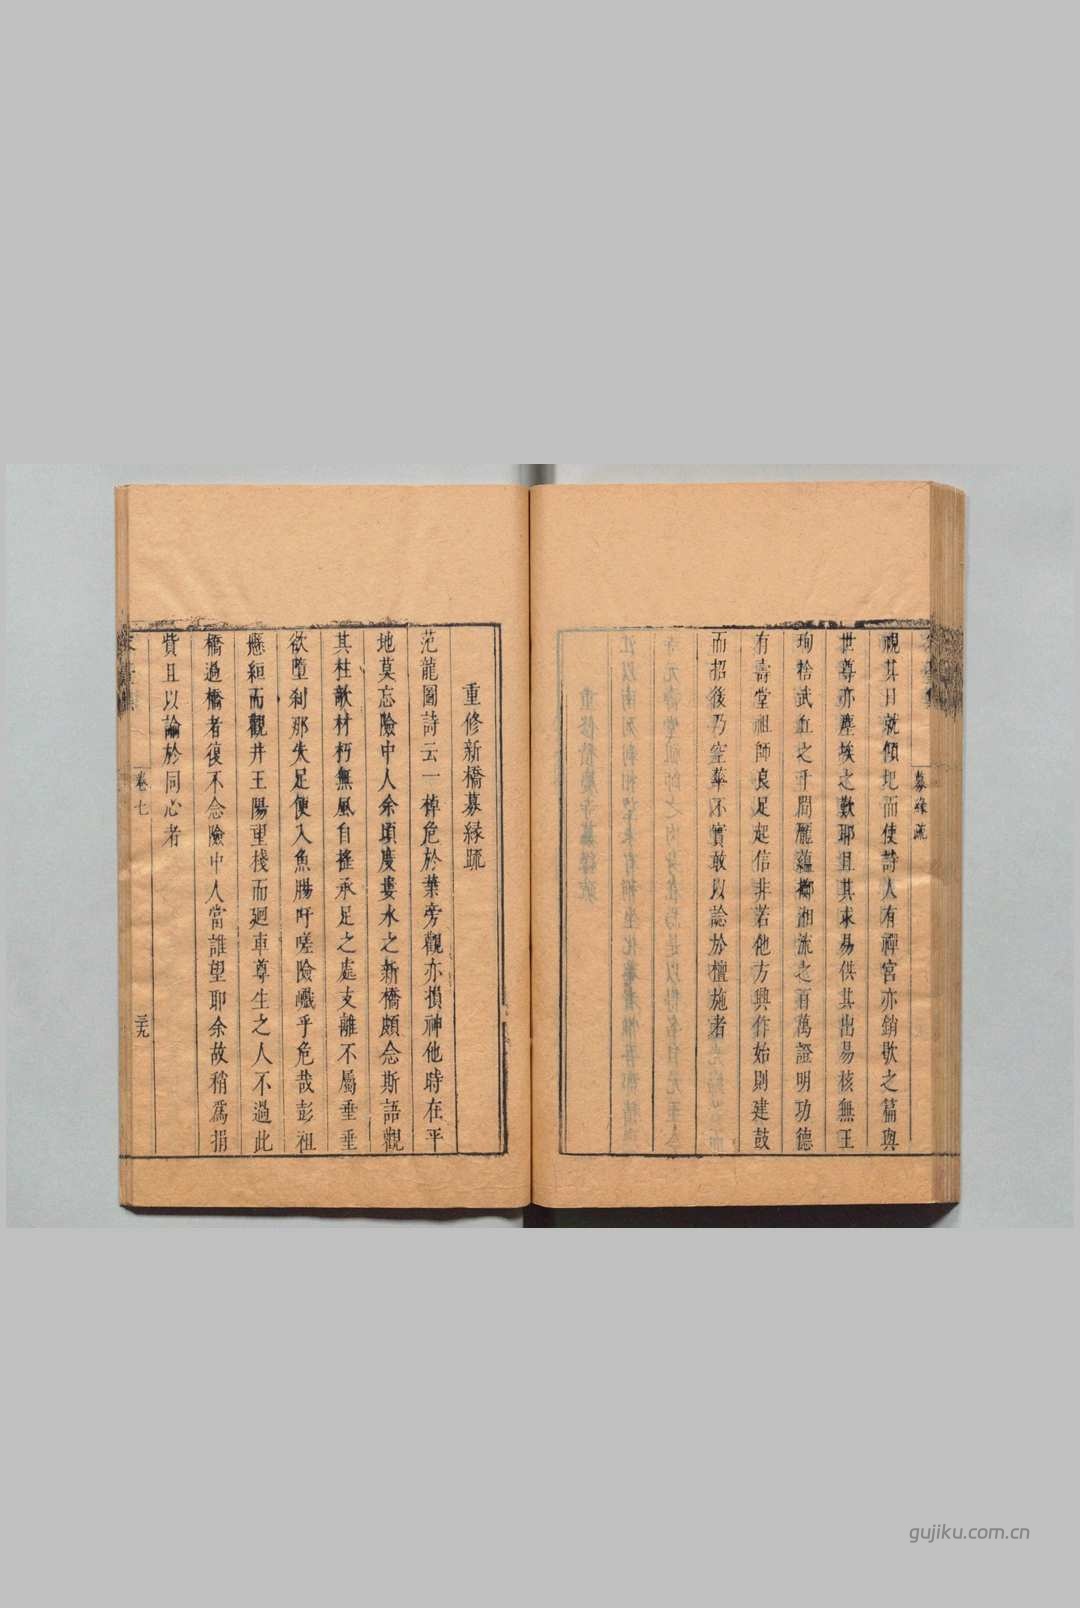 募緣疏
視其日就傾圯而使詩人有禪宮亦銷歇之篇與
世尊亦塵埃之歎耶且其求易供其出易核無王
珣捨武血之于間龐蘊擲湘流之百萬證明功德
有壽堂祖師良足起信非若他方興作始則建鼓
而招後乃空華不實敢以諗於檀施者
重修新橋募緣疏
范龍圖詩云一棹危於葉旁觀亦損神他時在平
地莫忘險中人余頃度婁水之新橋頗念斯語觀
其柱欹材朽無風自搖承足之處支離不屬垂垂
欲墮剎那失足便入魚腸吁嗟險巇乎危哉彭祖
懸絙而觀井王陽重棧而廻車尊生之人不過此
橋過橋者復不念險中人當誰望耶余故稍爲捐
貲且以論於同心者
卷七
三九
gujiku.com.cn